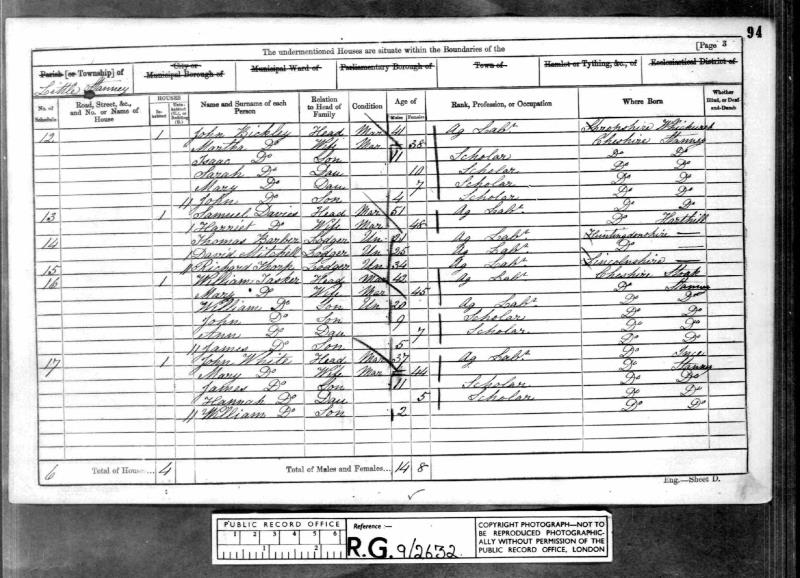 94
The undermentioned Houses are situate within the Boundaries of the [Page 3
Parish [or Township] of City or Municipal Borough of Municipal Ward of Parliamentary Borough of Town of Hamlet or Tything, &c., of Ecclesiastical District of
Little Stanney
No. of Schedule Road, Street, &c., and No. or Name of House HOUSES Inhabited Uninhabited (U.), or Building (B.) Name and Surname of each Person Relation to Head of Family Condition Age of Males Females Rank, Profession, or Occupation Where Born Whether Blind, or Deaf-and-Dumb
12 1 John Bickley Head Mar 41 Ag Labr Shropshire
Martha Do Wife Mar 38 Cheshire Stanney
Isaac Do Son 11 Scholar Do Do
Sarah Do Dau 10 Scholar Do Do
Mary Do Dau 7 Scholar Do Do
John Do Son 4 Scholar Do Do
13 1 Samuel Davies Head Mar 51 Ag Labr Do Harthill
Harriet Do Wife Mar 48 Do
14 Thomas Barber Lodger Un 21 Ag Labr Huntingdonshire —
David Mitchell Lodger Un 25 Ag Labr Do —
15 Richard Thorp Lodger Un 34 Ag Labr Lincolnshire —
16 1 William Tasker Head Mar 42 Ag Labr Cheshire
Mary Do Wife Mar 45 Do Stanney
William Do Son Un 20 Ag Labr Do Do
John Do Son 9 Scholar Do Do
Ann Do Dau 7 Scholar Do Do
James Do Son 5 Do Do
17 1 John White Head Mar 37 Ag Labr Do Ince
Mary Do Wife Mar 44 Do Stanney
James Do Son 11 Scholar Do Do
Hannah Do Dau 5 Scholar Do Do
William Do Son 2 Do Do
6 Total of Houses... 4 Total of Males and Females... 14 8
Eng.—Sheet D.
PUBLIC RECORD OFFICE
1 2 3 4 5 6
1 2
Reference :—
R.G. 9/2632
COPYRIGHT PHOTOGRAPH—NOT TO
BE REPRODUCED PHOTOGRAPHIC-
ALLY WITHOUT PERMISSION OF THE
PUBLIC RECORD OFFICE, LONDON